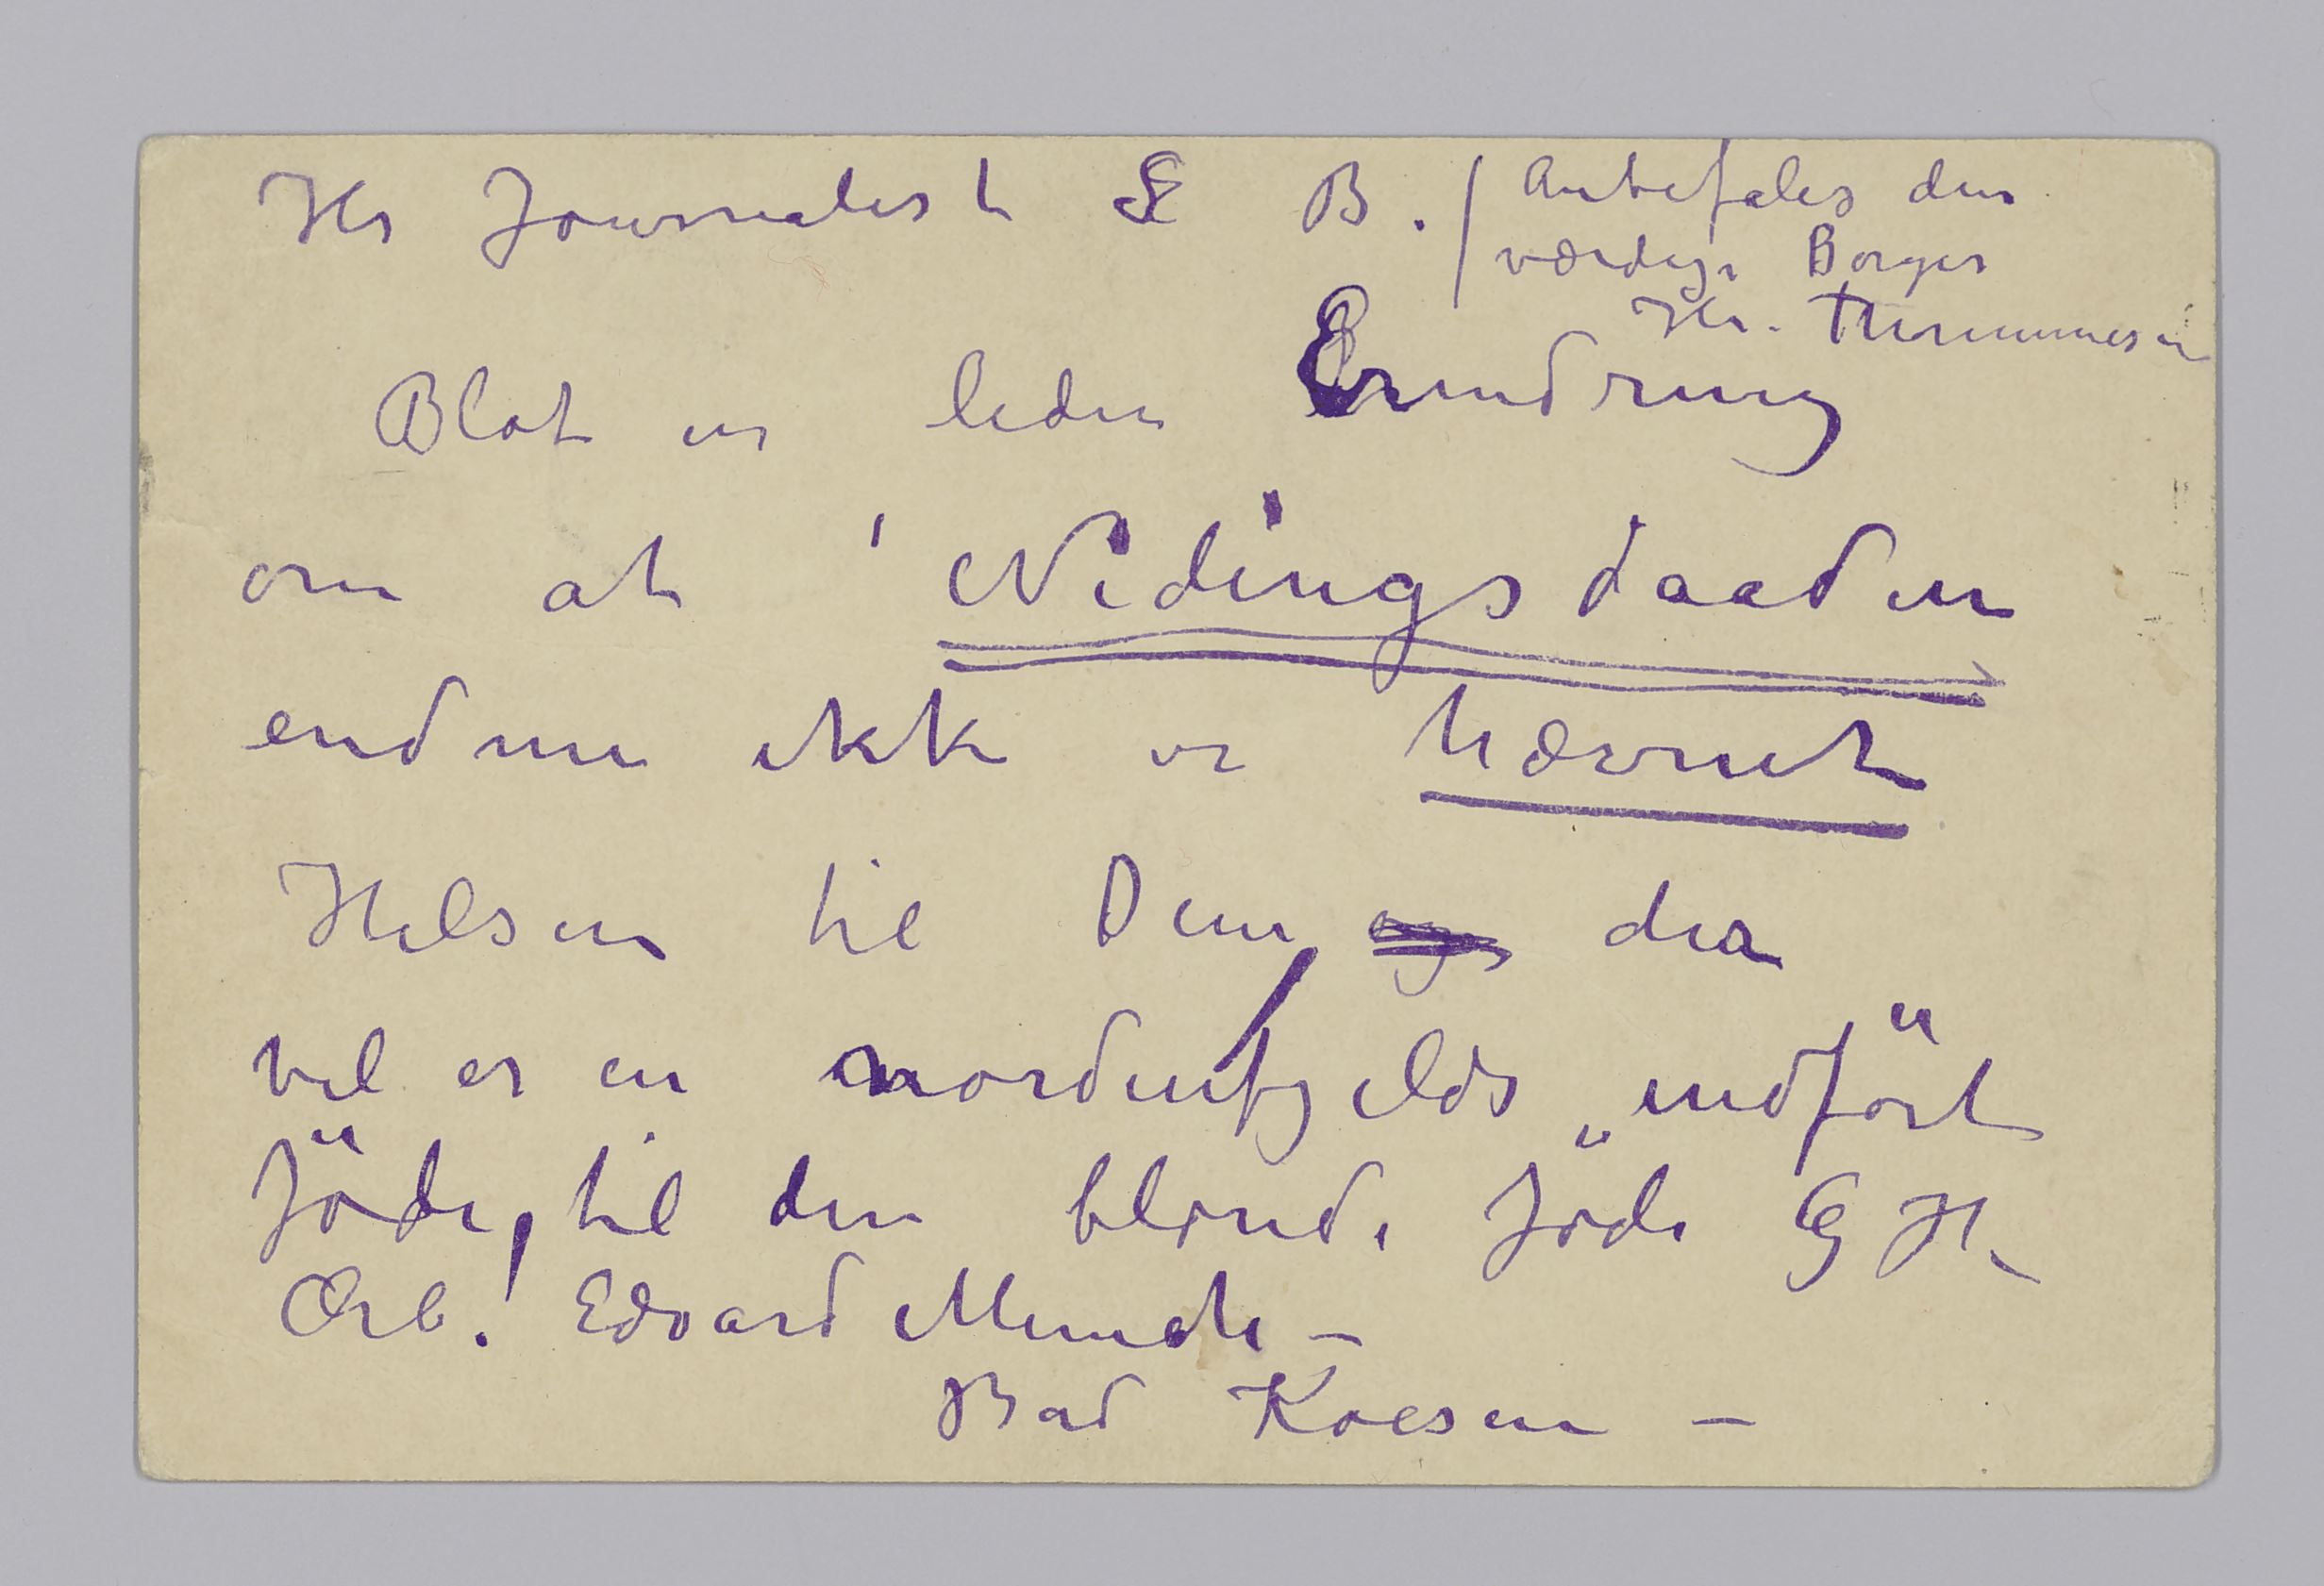 Hr Journalist L B.
Anbefales den
værdige Borger
Hr. Thommesen
Blot en liden Erindring
om at Nidingsdaaden
endnu ikke er hævnet
Hilsen til Dem der
vel er en nordenfjelds „indført"
Jöde, til den blonde Jöde G H.
Ærb. Edvard Munch –
Bad Koesen –